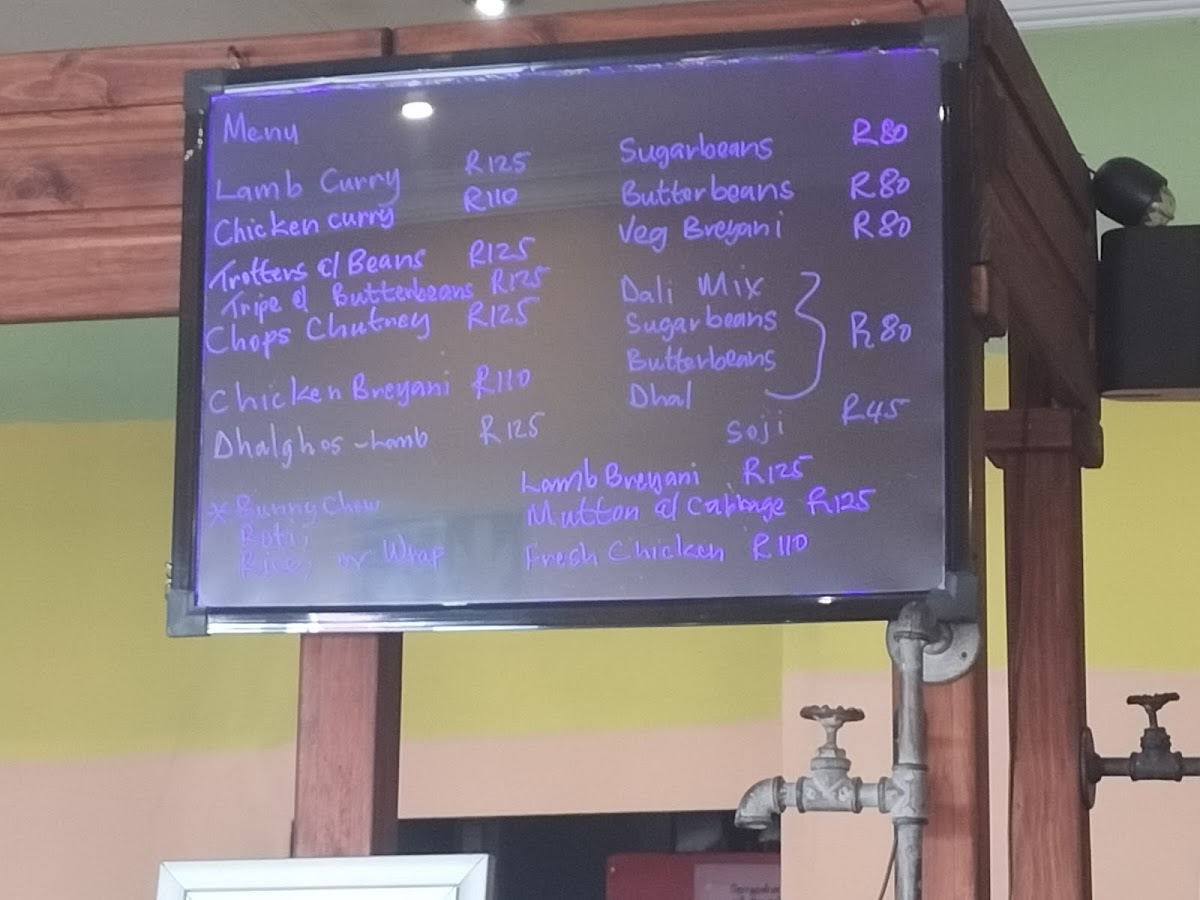 Menu
Lamb Curry R125
Chicken curry R110
Trotters c/ Beans R125
Tripe c/ Butterbeans R125
Chops Chutney R125
Chicken Breyani R110
Dhalghos - Lamb R125
* Bunny Chow
Roti,
Rice, or Wrap
Sugarbeans R80
Butterbeans R80
Veg Breyani R80
Dali Mix
Sugarbeans
Butterbeans
Dhal
R80
Soji R45
Lamb Breyani R125
Mutton c/ Cabbage R125
Fresh Chicken R110